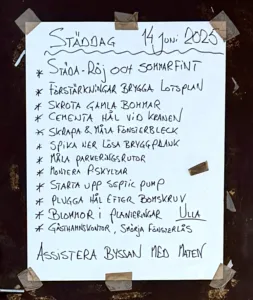 STÄDDAG 14 JUNI 2025
* STÄDA-RÖJ OCH SOMMARFINT
* FÖRSTÄRKNINGAR BRYGGA LOTSPLAN
* SKROTA GAMLA BOMMAR
* CEMENTA HÅL VID KRANEN
* SKRAPA & MÅLA FÖNSTERBLECK
* SPIKA NER LÖSA BRYGGPLANK
* MÅLA PARKERINGSRUTOR
* MONTERA P SKYLTAR
* STARTA UPP SEPTIC PUMP
* PLUGGA HÅL EFTER BOMSKRUV
* BLOMMOR I PLANTERINGAR ULLA
* GÄSTHAMNSKONTOR, SMÖRJA FÖNSTERLÅS
ASSISTERA BYSSAN MED MATEN